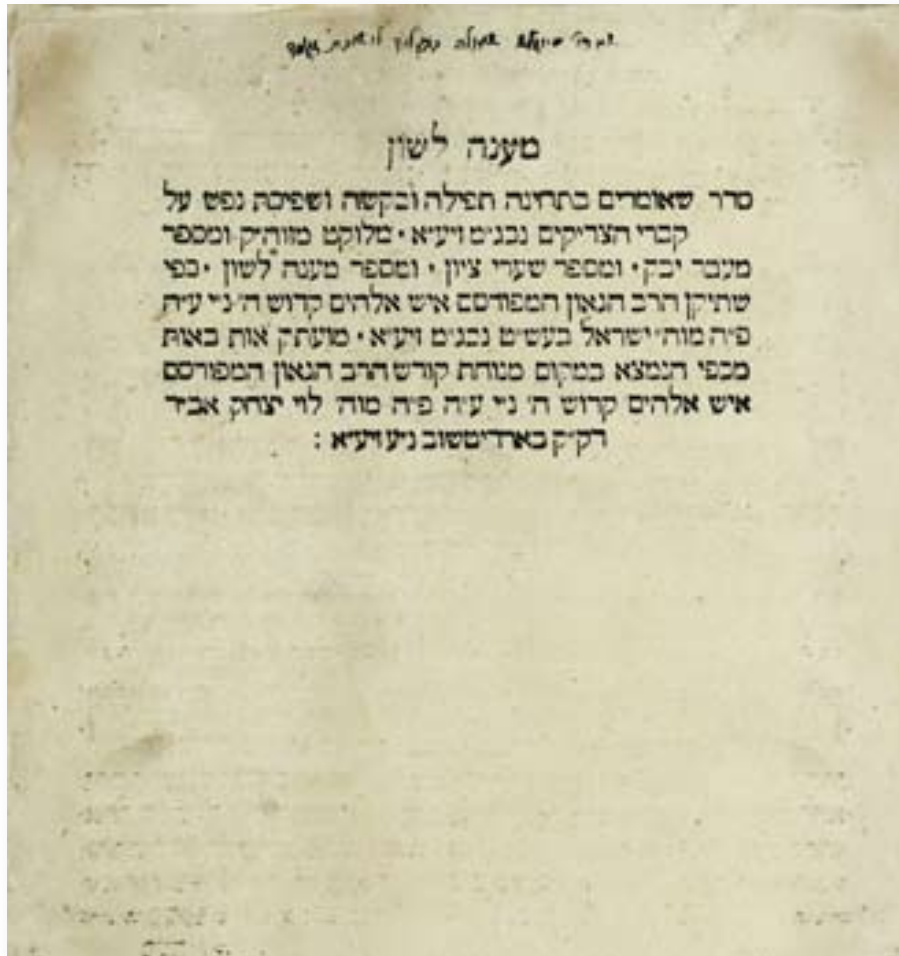 מענה לשון
סדר שאומרים בתחינה תפילה ובקשה ושפיכת נפש על
קברי הצדיקים נבג״מ זיע״א · מלוקט מזוה״ק ומספר
מעבר יבק · ומספר שערי ציון · ומספר מענה לשון · כפי
שתיקן הרב הגאון המפורסם איש אלהים קדוש ה׳ נ״י ע״ה
פ״ה מוה׳ ישראל בעש״ט נבג״מ זיע״א · מועתק אות באות
מכפי הנמצא במקום מנוחת קודש הרב הגאון המפורסם
איש אלהים קדוש ה׳ נ״י ע״ה פ״ה מוה׳ לוי יצחק אב״ד
דק״ק בארדיטשוב נ״ע זיע״א :